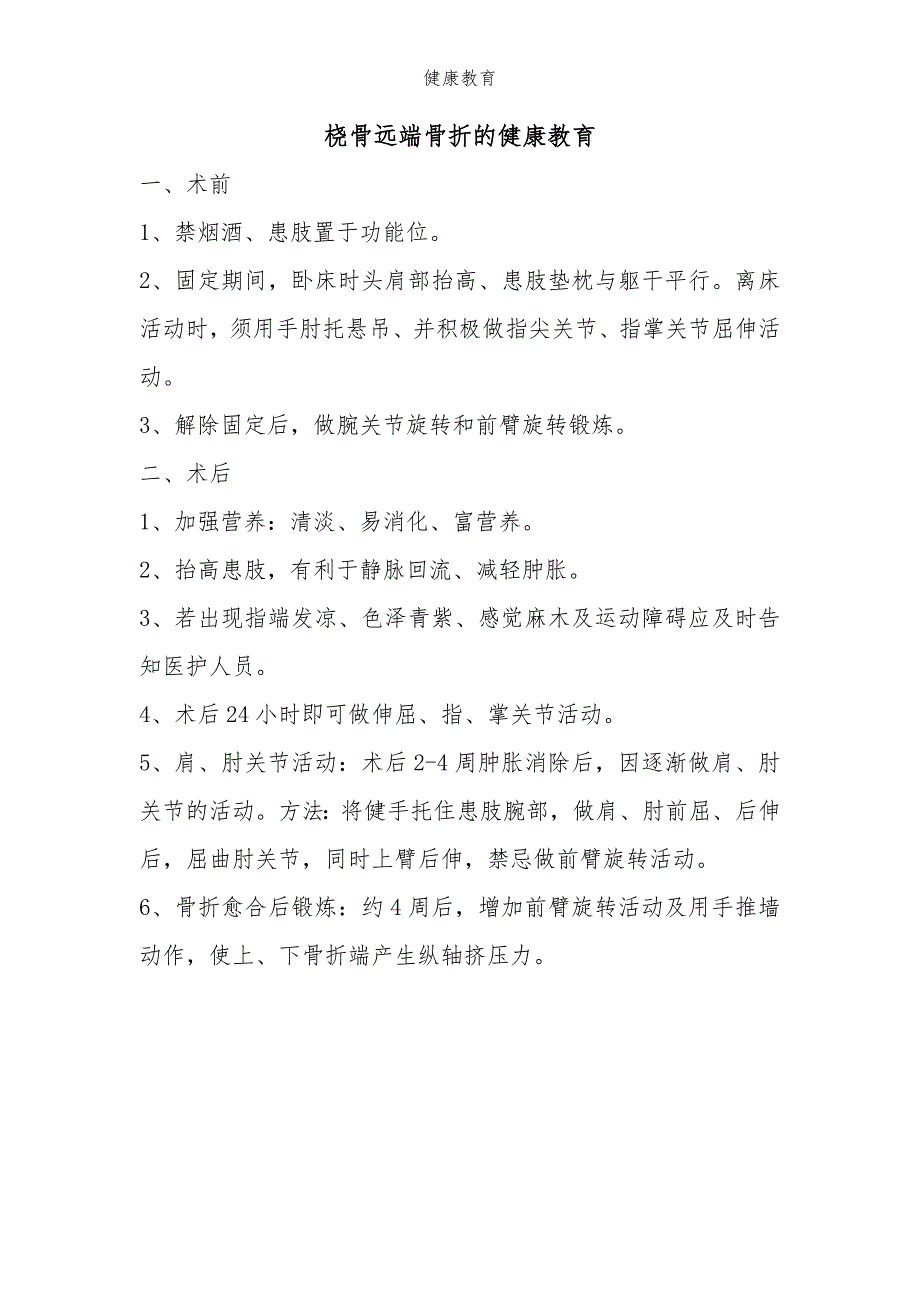 健康教育
桡骨远端骨折的健康教育
一、术前
1、禁烟酒、患肢置于功能位。
2、固定期间，卧床时头肩部抬高、患肢垫枕与躯干平行。离床
活动时，须用手肘托悬吊、并积极做指尖关节、指掌关节屈伸活
动。
3、解除固定后，做腕关节旋转和前臂旋转锻炼。
二、术后
1、加强营养：清淡、易消化、富营养。
2、抬高患肢，有利于静脉回流、减轻肿胀。
3、若出现指端发凉、色泽青紫、感觉麻木及运动障碍应及时告
知医护人员。
4、术后24小时即可做伸屈、指、掌关节活动。
5、肩、肘关节活动：术后2-4周肿胀消除后，因逐渐做肩、肘
关节的活动。方法：将健手托住患肢腕部，做肩、肘前屈、后伸
后，屈曲肘关节，同时上臂后伸，禁忌做前臂旋转活动。
6、骨折愈合后锻炼：约4周后，增加前臂旋转活动及用手推墙
动作，使上、下骨折端产生纵轴挤压力。